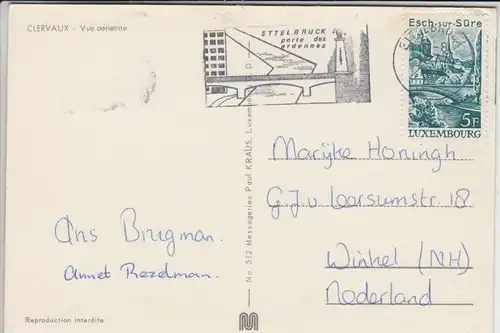 CLERVAUX - Vue aérienne
ETTELBRUCK
porte des
ardennes
Esch-sur-Sûre
5F
LUXEMBOURG
Marijke Honingh
G.J v Loorsumstr. 18
Winkel (NH)
Nederland
Ans Brugman.
Annet Rezelman.
No. 512 Messageries Paul KRAUS, Luxem
Reproduction interdite